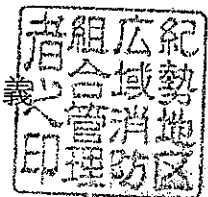 紀勢地区
広域消防
組合管理
者之印
義